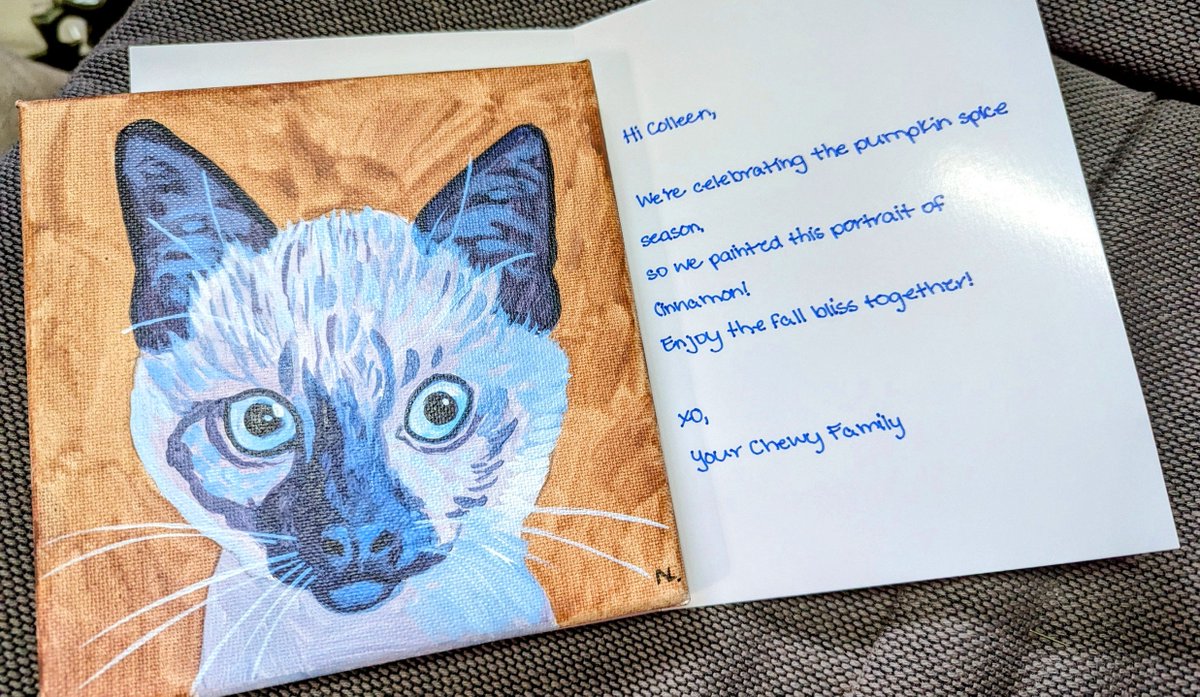 Hi Colleen,
We're celebrating the pumpkin spice
season,
so we painted this portrait of
Cinnamon!
Enjoy the fall bliss together!
xo,
Your Chewy Family
NL.